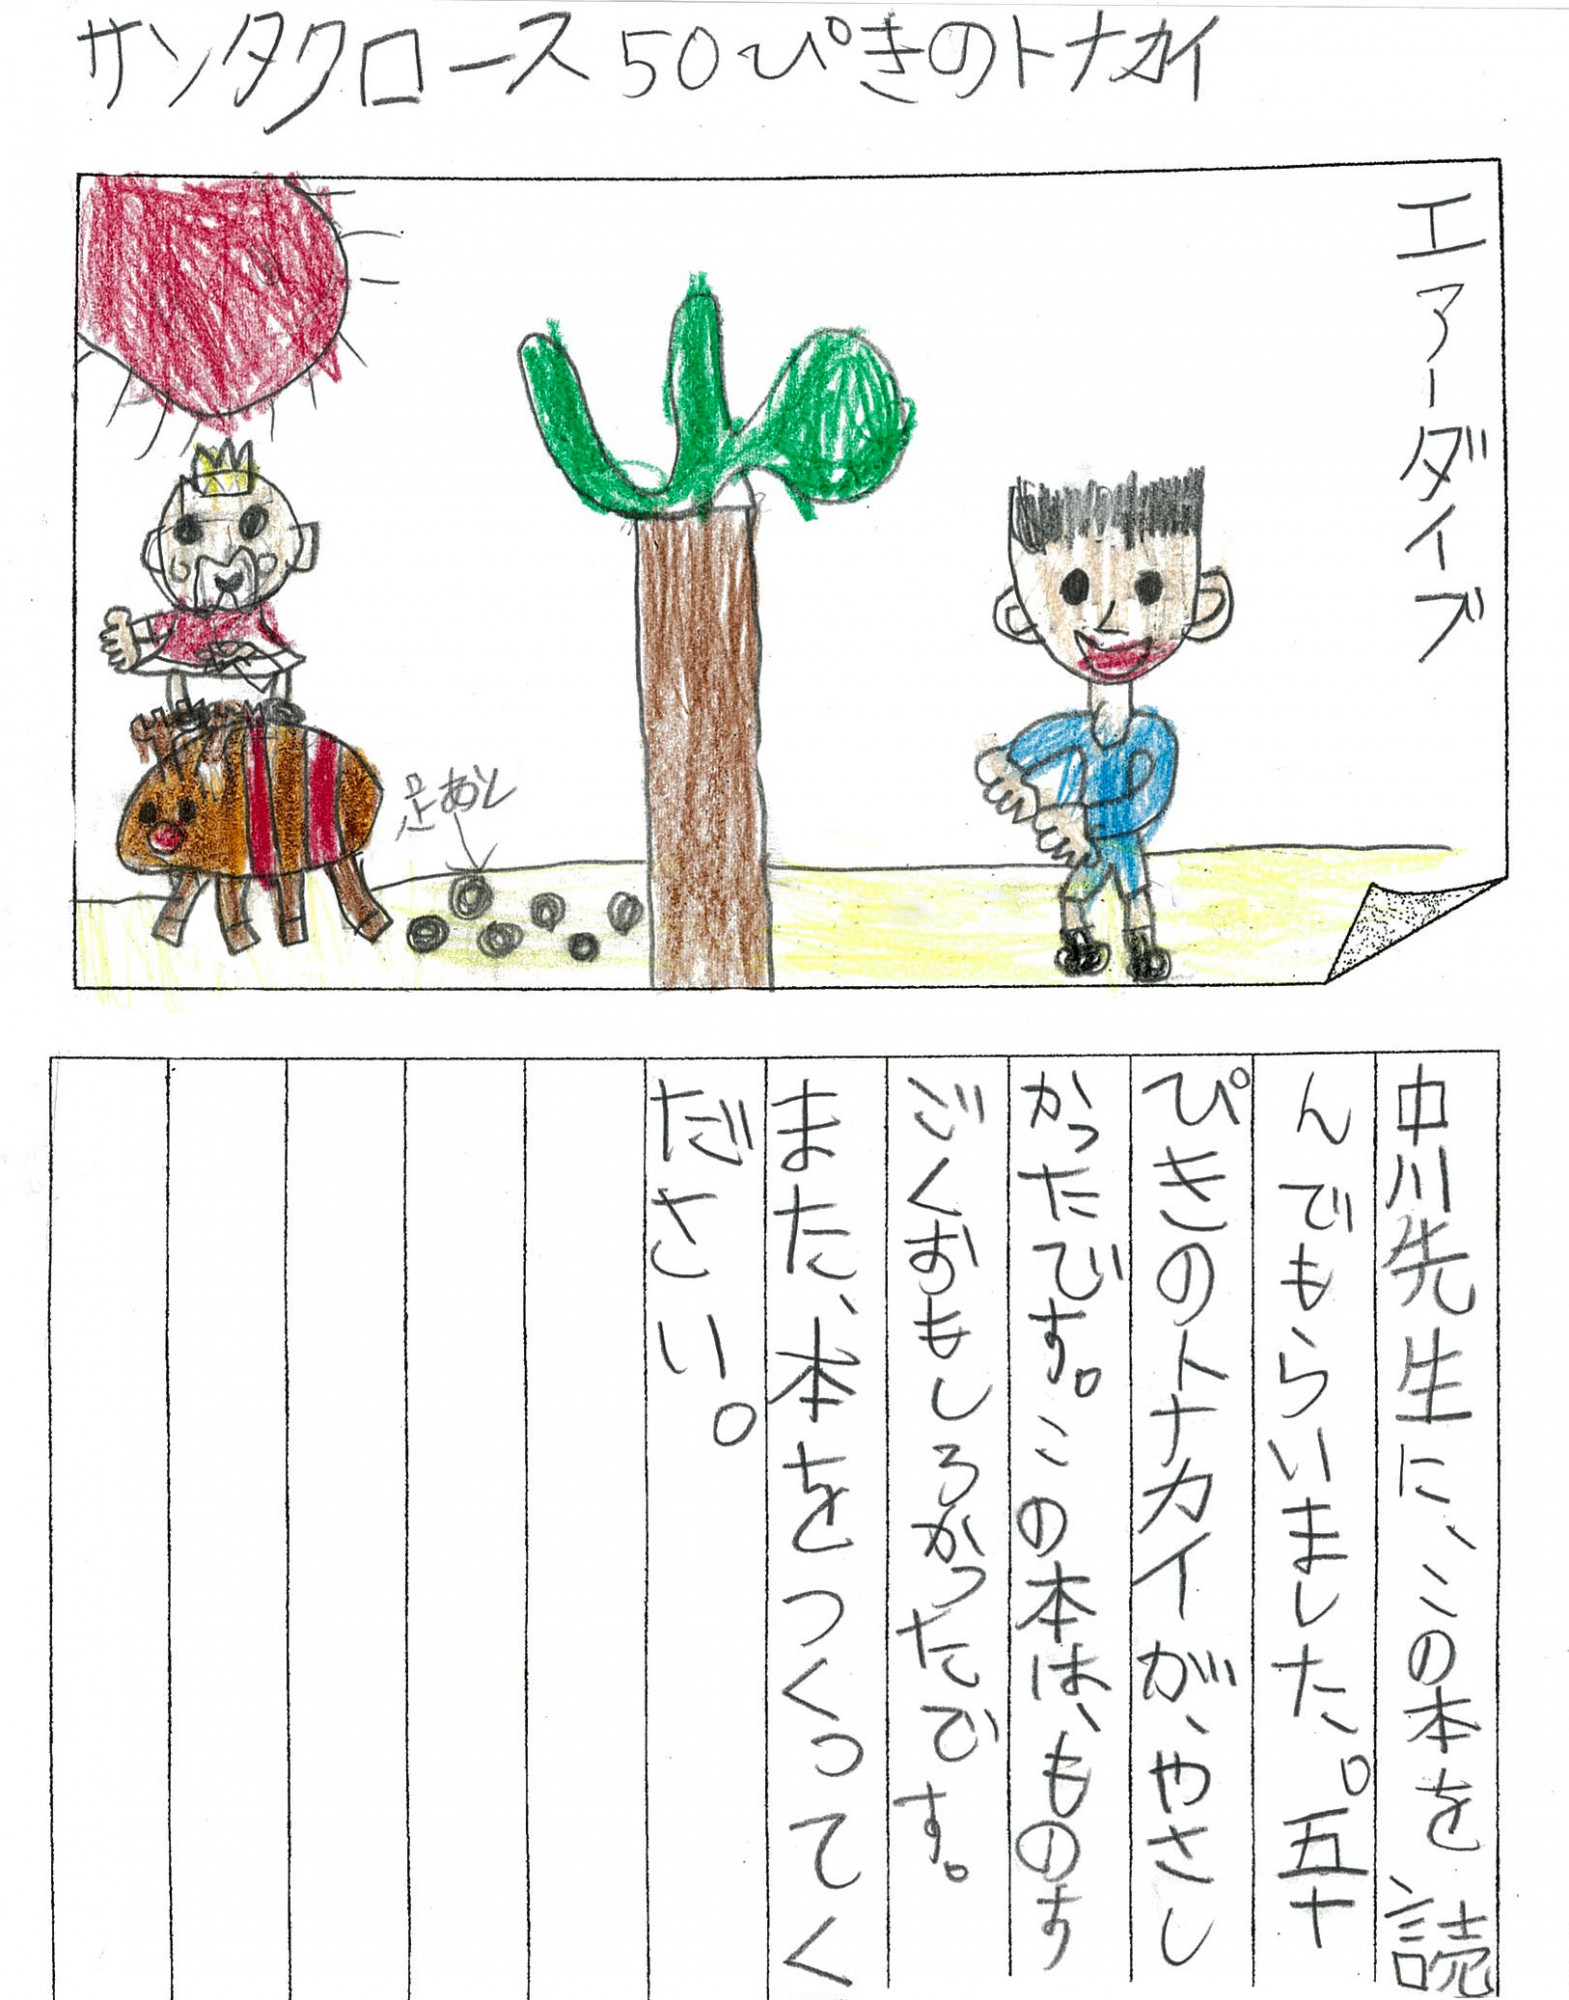 サンタクロース50ぴきのトナカイ
エアーダイブ
足あと
中川先生に、この本を読
んでもらいました。五十
ぴきのトナカイが、やさし
かったです。この本は、ものす
ごくおもしろかったです。
また、本をつくってく
ださい。